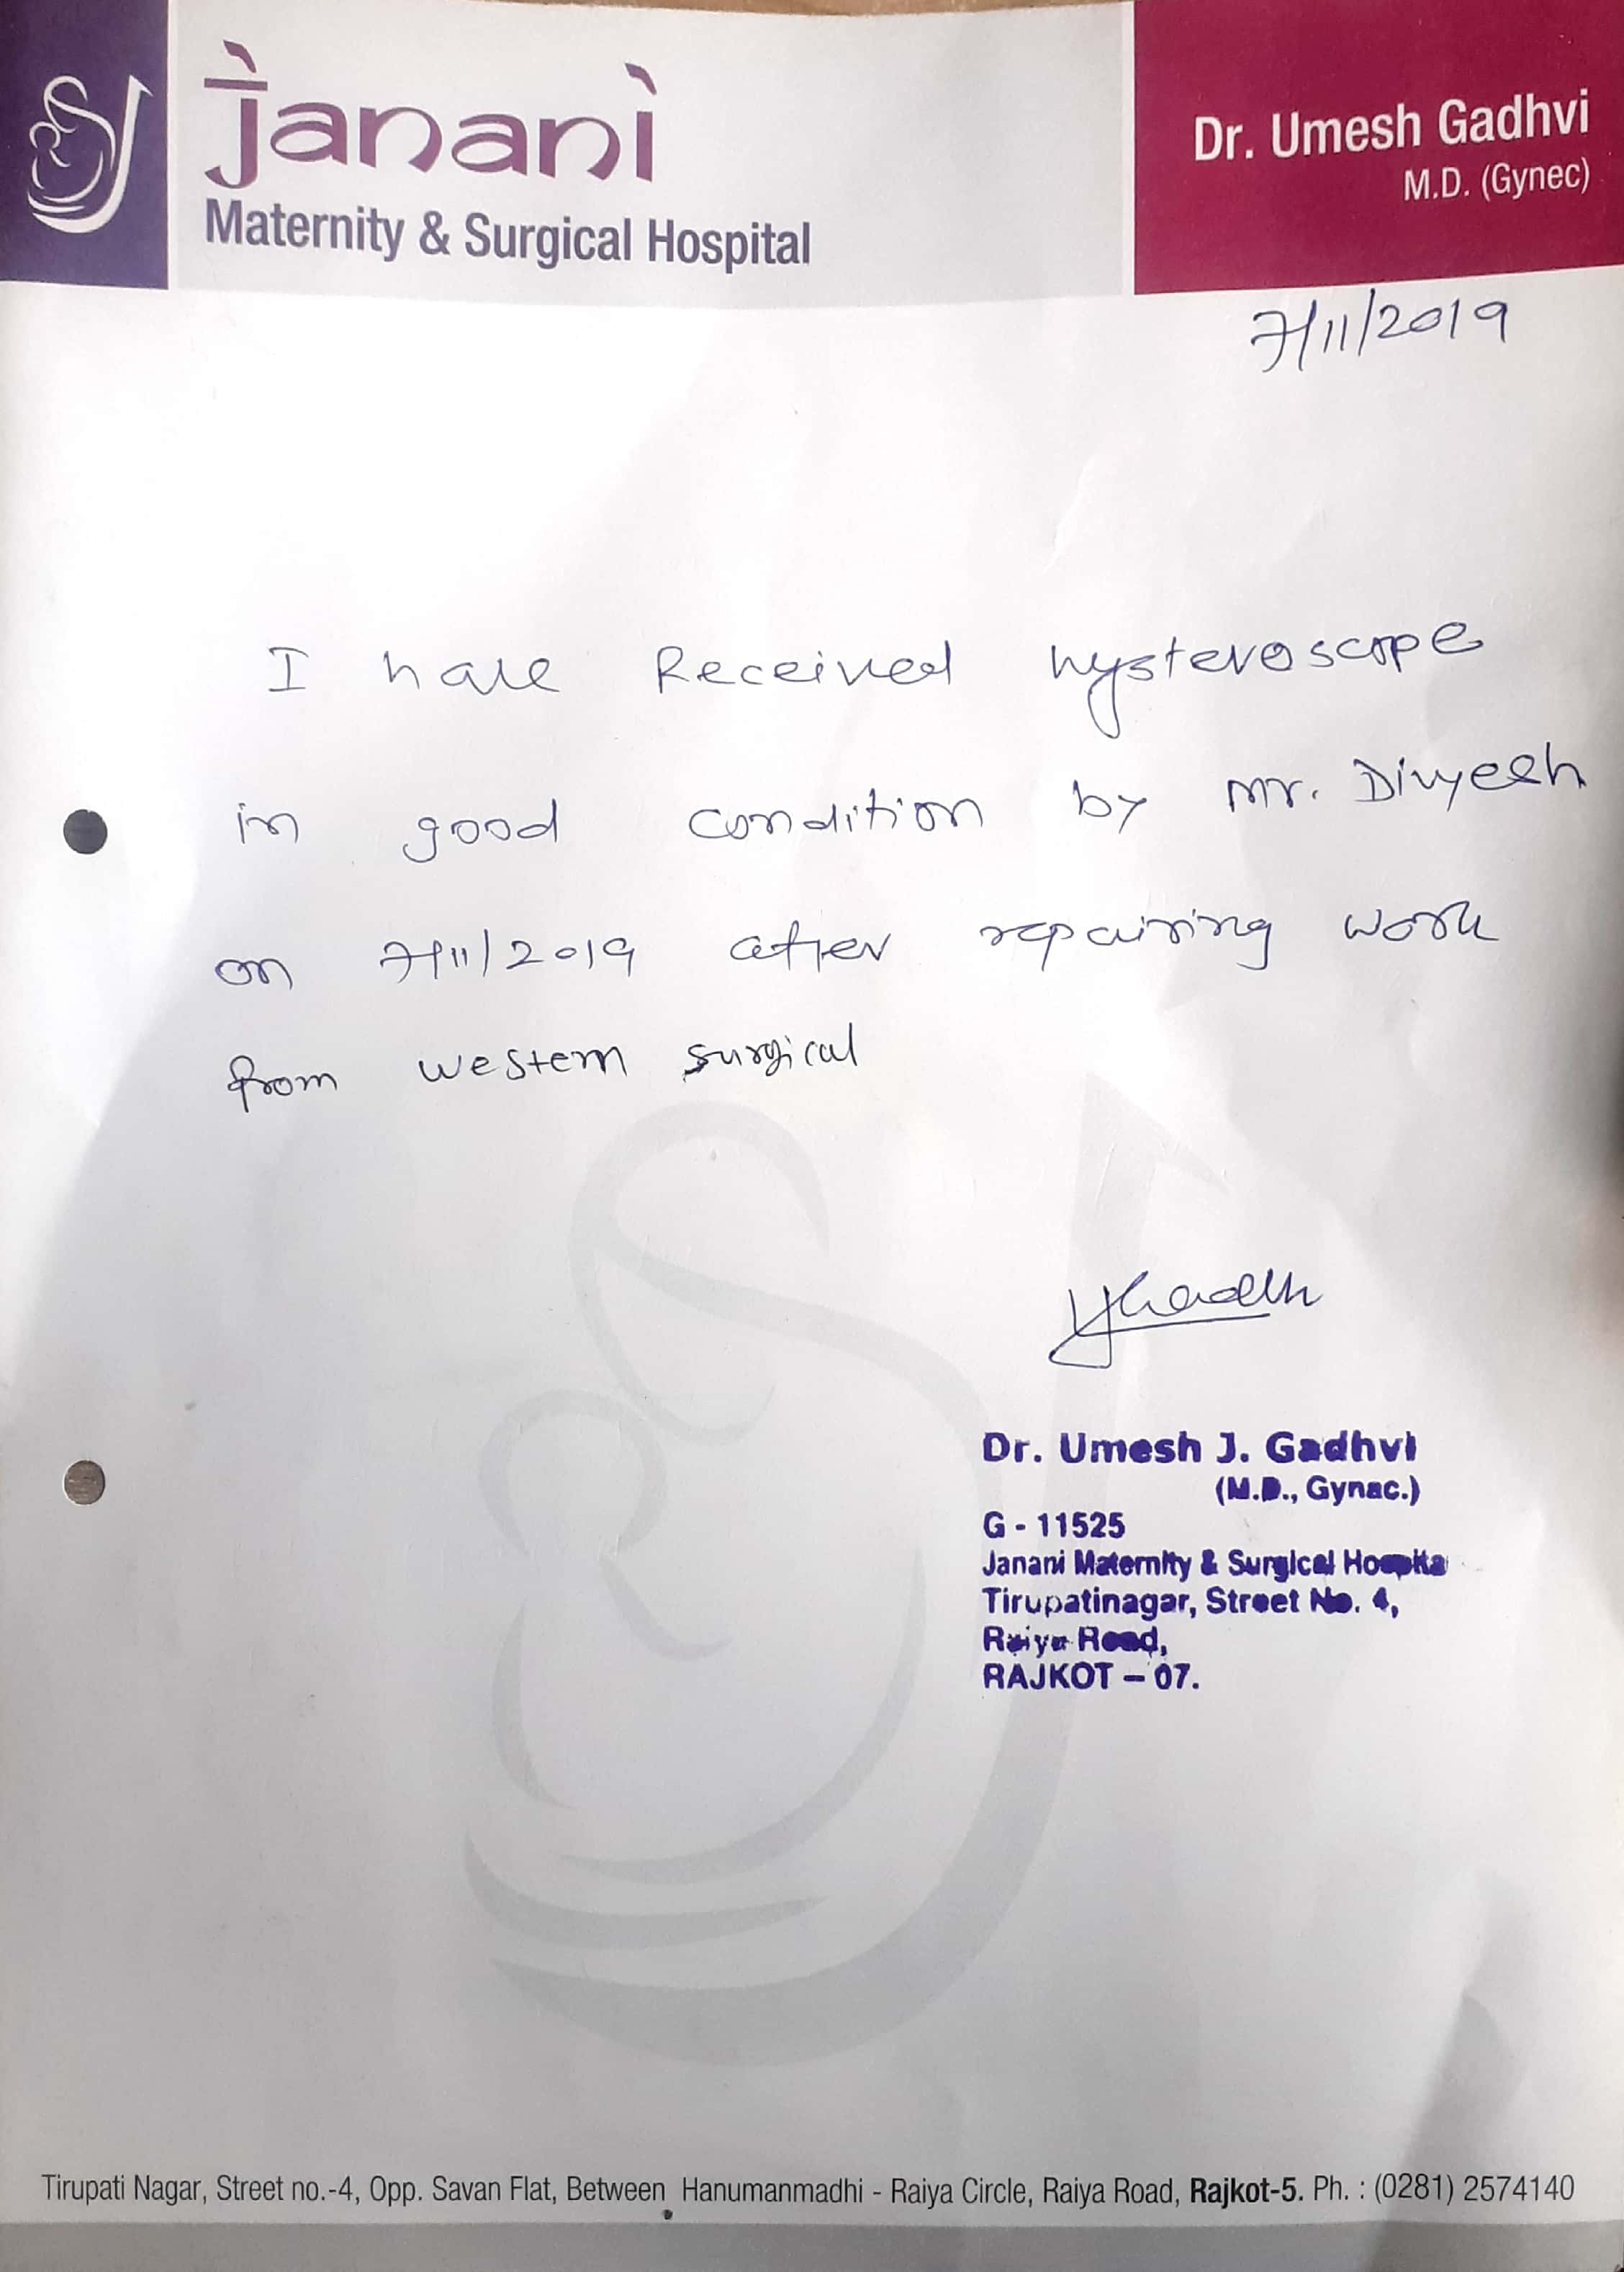 Janani
Maternity & Surgical Hospital
Dr. Umesh Gadhvi
M.D. (Gynec)
7/11/2019
I have Received hysteroscope
in good condition by Mr. Divyesh
on 7/11/2019 after repairing work
from western surgical
Dr. Umesh J. Gadhvi
(M.D., Gynac.)
G - 11525
Janani Maternity & Surgical Hospita
Tirupatinagar, Street No. 4,
Raiya Road,
RAJKOT – 07.
Tirupati Nagar, Street no.-4, Opp. Savan Flat, Between Hanumanmadhi - Raiya Circle, Raiya Road, Rajkot-5. Ph. : (0281) 2574140